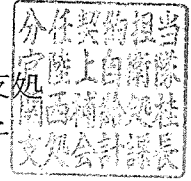 支処
分任契約担当
官陸上自衛隊
関西補給処桂
支処会計課長